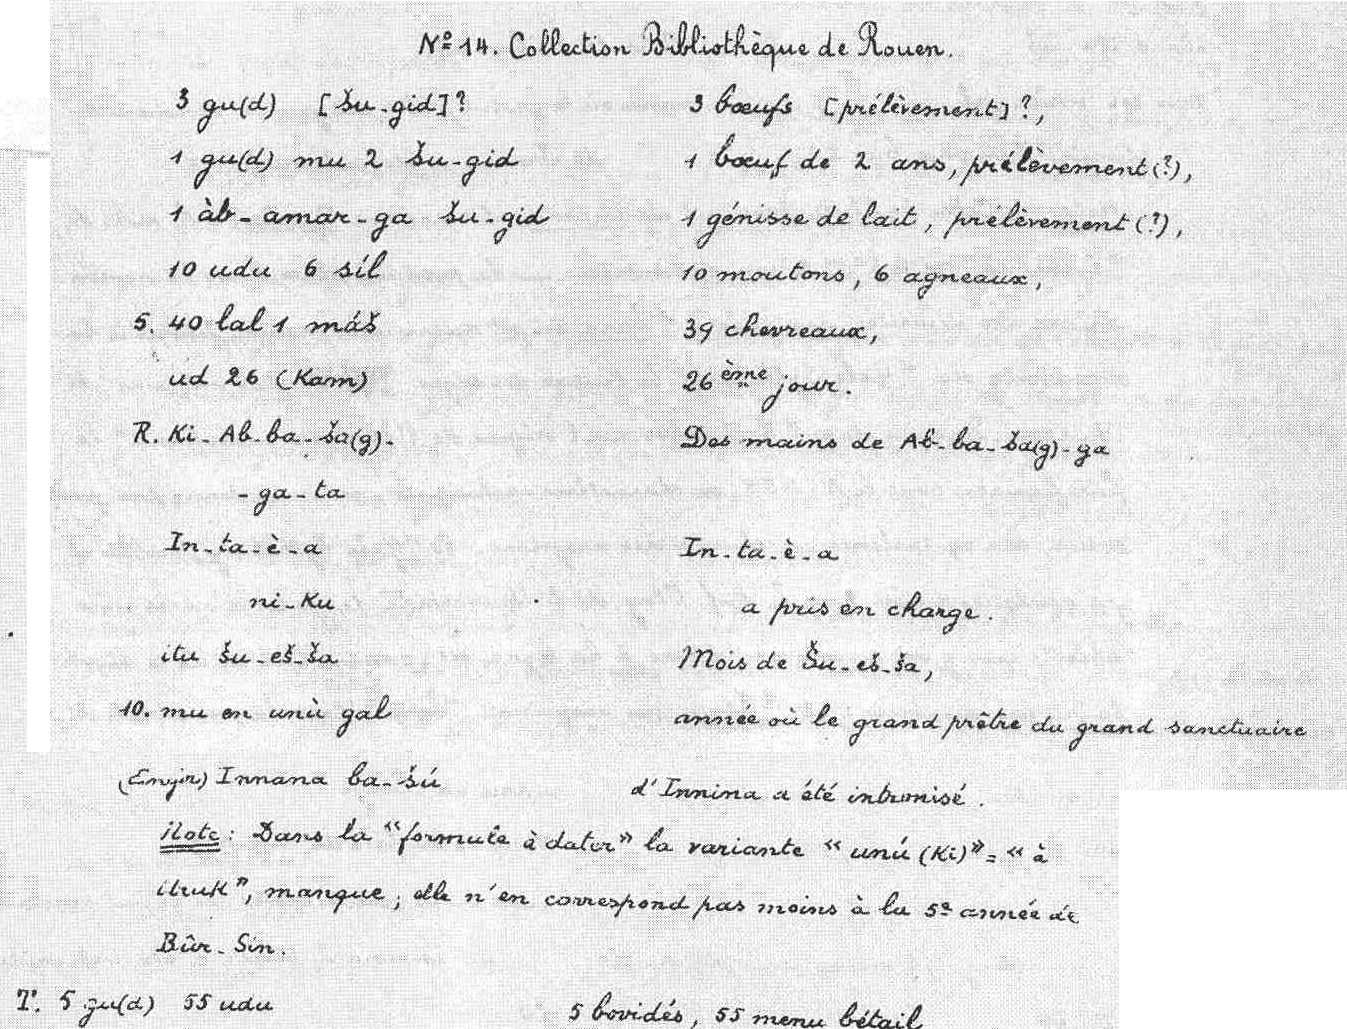 Nº 14. Collection Bibliothèque de Rouen.
3 gu(d) [šu-gid]? 3 bœufs [prélèvement]?,
1 gu(d) mu 2 šu-gid 1 bœuf de 2 ans, prélèvement(?),
1 àb-amar-ga šu-gid 1 génisse de lait, prélèvement(?),
10 udu 6 síl 10 moutons, 6 agneaux,
5. 40 lal 1 máš 39 chevreaux,
ud 26 (Kam) 26ème jour.
R. Ki-Ab-ba-ša(g)- Des mains de Ab-ba-ša(g)-ga
-ga-ta
In-ta-è-a In-ta-è-a
ni-Ku a pris en charge.
itu šu-eš-ša Mois de Šu-eš-ša,
10. mu en unù gal année où le grand prêtre du grand sanctuaire
Innana ba-šú d'Innina a été intronisé.
Note: Dans la "formule à dater" la variante « unú (Ki)» = « à
Uruk", manque; elle n'en correspond pas moins à la 5e année de
Bûr-Sin.
T. 5 gu(d) 55 udu 5 bovidés, 55 menu bétail